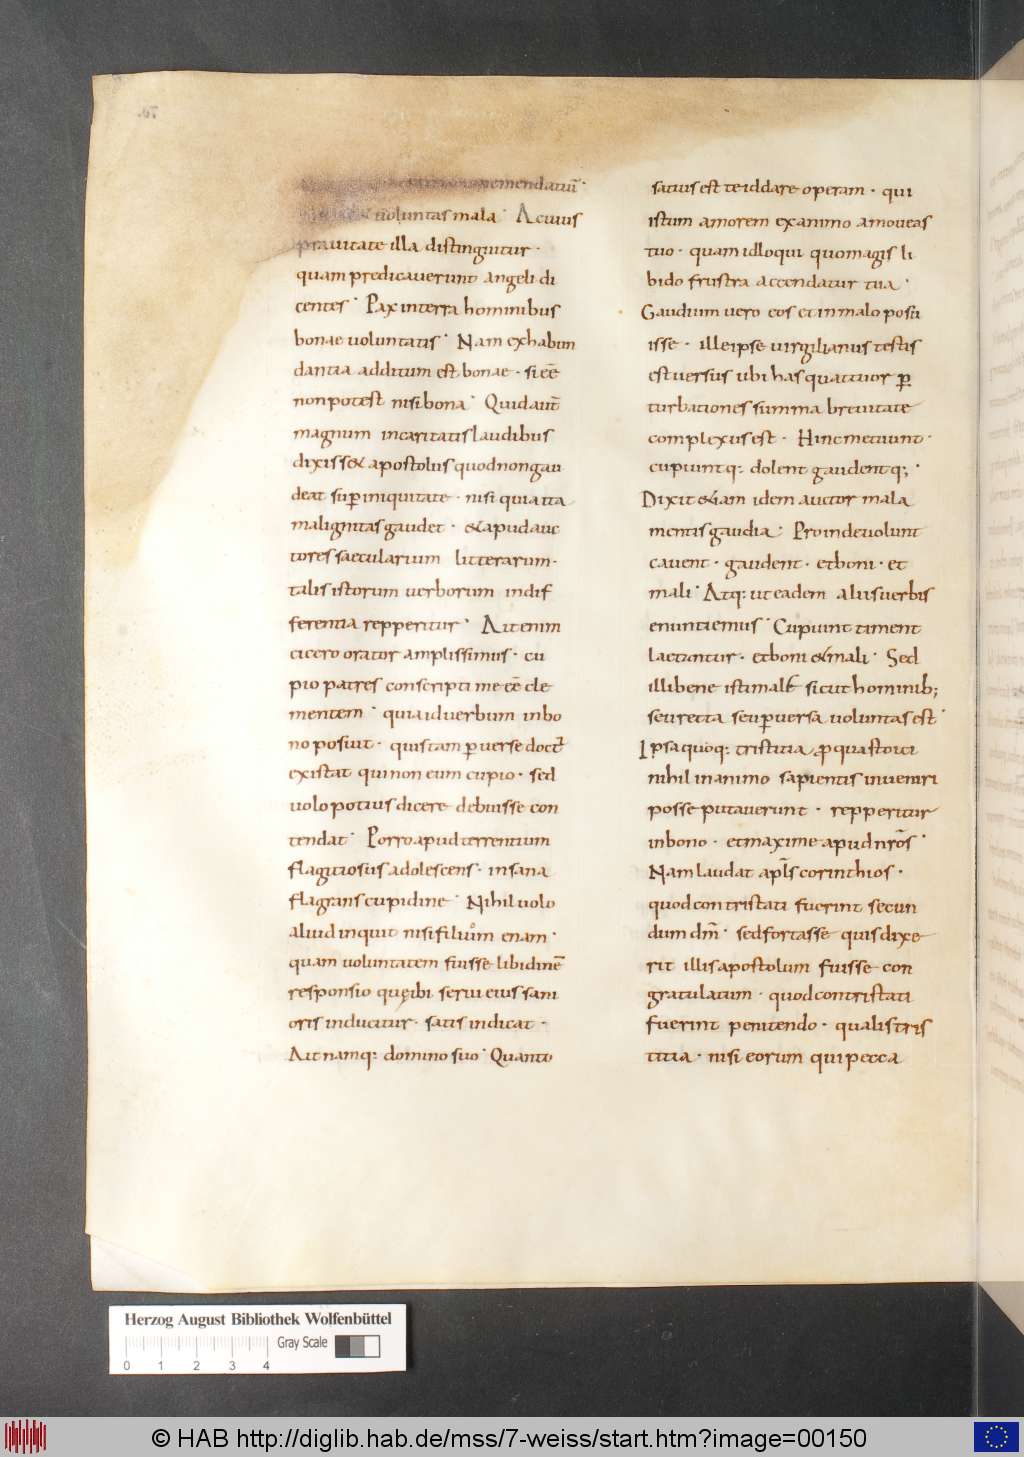 emendatiu̅·
voluntas mala· A cuius
pravitate illa distinguitur·
quam predicaverunt angeli di
centes· Pax in terra hominibus
bonae voluntatis· Nam ex habun
dantia additum est bonae· si ee̅
non potest nisi bona· Quid aut̅
magnum in caritatis laudibus
dixiss& apostolus quod non gau
deat sup̲ iniquitate· nisi quia ita
malignitas gaudet· & apud auc
tores saecularium litterarum·
talis istorum verborum indif
ferentia repperitur· Ait enim
cicero orator amplissimus· cu
pio patres conscripti me ee̅ cle
mentem· quia id verbum in bo
no posuit· quis tam p̲verse doct̅
existat qui non eum cupio· sed
volo potius dicere debuisse con
tendat· Porro apud terrentium
flagitiosus adolescens· insana
flagrans cupidine· Nihil volo
aliud inquit nisi filiuͦm enam·
quam voluntatem fuisse libidine̅
responsio quę ibi servi eius sani
oris inducitur· satis indicat·
Ait namq: domino suo· Quanto
satius est te id dare operam· qui
istum amorem ex animo amoveas
tuo· quam id loqui quo magis li
bido frustra accendatur tua·
Gaudium vero eos et in malo posu
isse· ille ipse virgilianus testis
est versus ubi has quattuor p̲
turbationes summa brevitate
complexus est· Hinc metuunt·
cupiuntq: dolent gaudentq;·
Dixit &iam idem auctor mala
mentis gaudia· Proinde volunt
cavent· gaudent· et boni· et
mali· Atq: ut eadem aliis verbis
enuntiemus· Cupiunt timent
laetantur· et boni & mali· Sed
illi bene isti male sicut hominib;
seu recta seu p̲versa voluntas est·
Ipsa quoq: tristitia p̲ qua stoici
nihil in animo sapientis inveniri
posse putaverunt· repperitur
in bono· et maxime apud nr̅os·
Nam laudat apl̅s corinthios·
quod contristati fuerint secun
dum dm̅· sed fortasse quis dixe
rit illis apostolum fuisse con
gratulatum· quod contristati
fuerint penitendo· qualis tris
titia· nisi eorum qui pecca
Herzog August Bibliothek Wolfenbüttel
Gray Scale
0 1 2 3 4
© HAB http://diglib.hab.de/mss/7-weiss/start.htm?image=00150